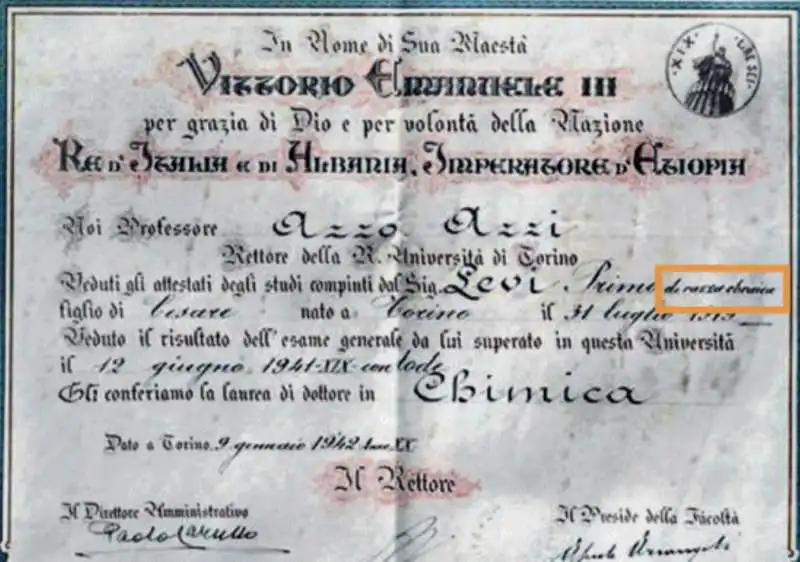 In Nome di Sua Maestà
VITTORIO EMANUELE III
per grazia di Dio e per volontà della Nazione
RE D'ITALIA E DI ALBANIA, IMPERATORE D'ETIOPIA
Noi Professore Azzo Azzi
Rettore della R. Università di Torino
Veduti gli attestati degli studi compiuti dal Sig. Levi Primo di razza ebraica
figlio di Cesare nato a Torino il 31 luglio 1919
Veduto il risultato dell'esame generale da lui superato in questa Università
il 12 giugno 1941-XIX con lode
Gli conferiamo la laurea di dottore in Chimica
Dato a Torino, 9 gennaio 1942 Anno XX
Il Rettore
Il Direttore Amministrativo
Il Preside della Facoltà
Paolo Carullo